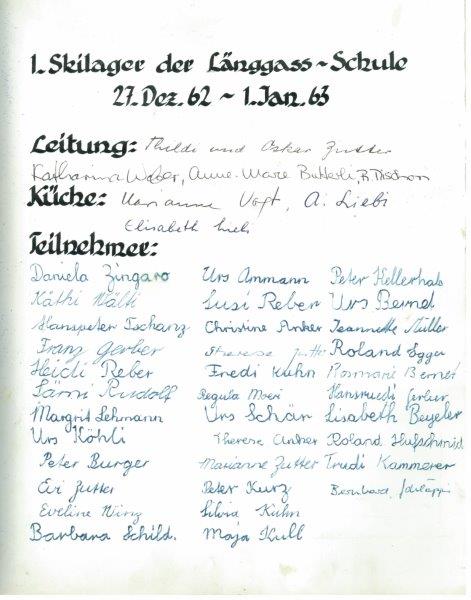 1. Skilager der Länggass~Schule
27. Dez. 62 ~ 1. Jan. 63
Leitung: Thilde und Oskar Zutter
Katharina Weber, Anne-Marie
Küche: Marianne Vogt, A. Liebi
Elisabeth
Teilnehmer:
Daniela Zingaro Urs Ammann Peter Kellerhals
Käthi Wälti Susi Reber Urs Bernd
Hanspeter Tschanz Christine Anker Jeannette Müller
Franz Gerber Therese Zutter Roland Egger
Heidi Reber Fredi Kuhn Rosmarie Berner
Sämi Rudolf Regula Hansruedi Gerber
Margrit Lehmann Urs Schär Lisabeth Beyeler
Urs Köhli Therese Anker Roland Hufschmid
Peter Burger Marianne Zutter Trudi Kammerer
Evi Zutter Peter Kurz Bernhard
Eveline Silvia Kuhn
Barbara Schild. Maja Kull